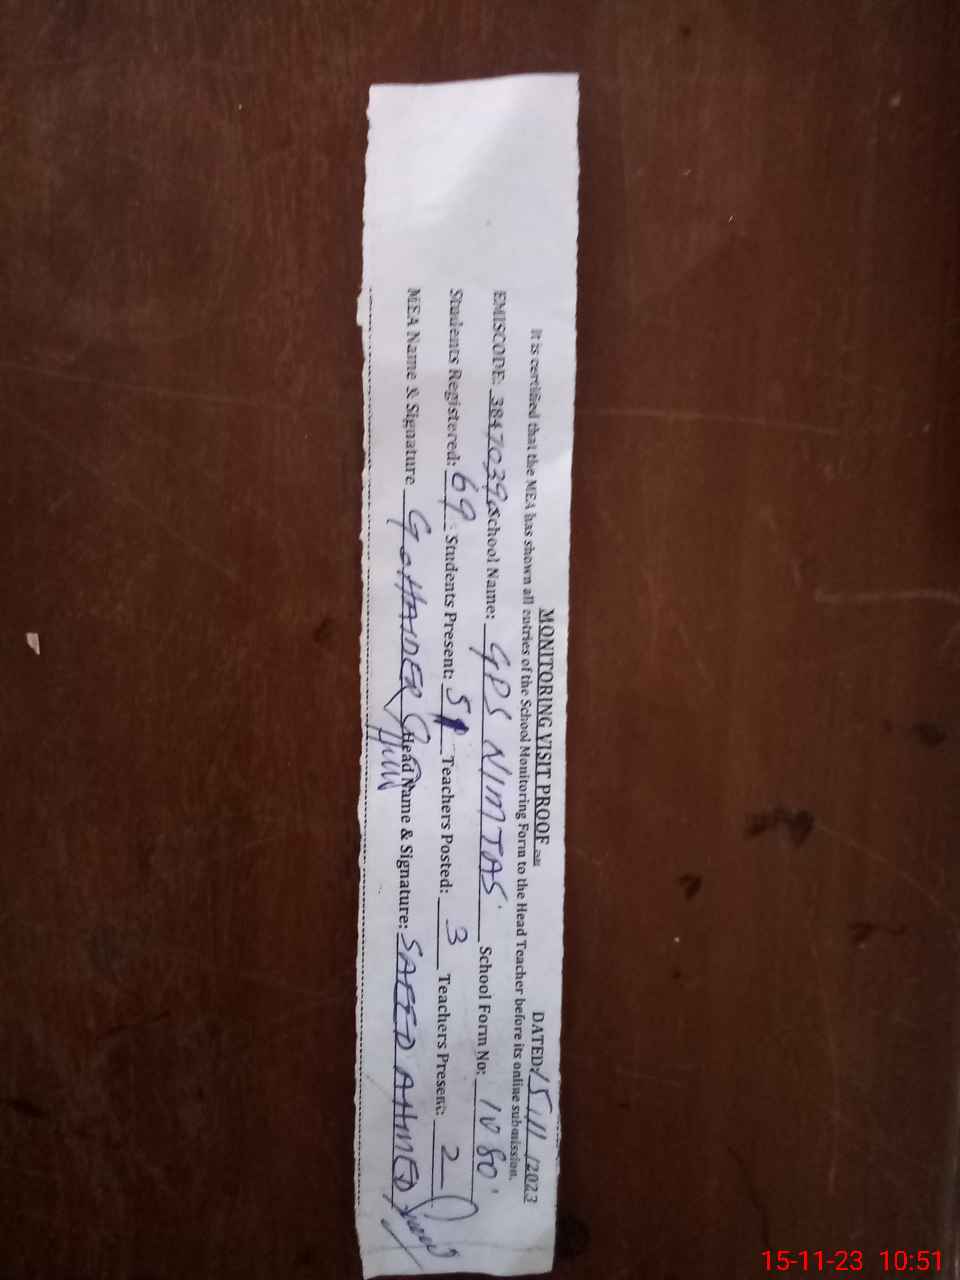 MONITORING VISIT PROOF
DATED: 15/11/2023
It is certified that the MEA has shown all entries of the School Monitoring Form to the Head Teacher before its online submission.
EMISCODE: 38470390 School Name: GPS NIMTAS School Form No: 1080
Students Registered: 69 Students Present: 51 Teachers Posted: 3 Teachers Present: 2
MEA Name & Signature HAIDER Head Name & Signature: SAEED AHMED
15-11-23 10:51